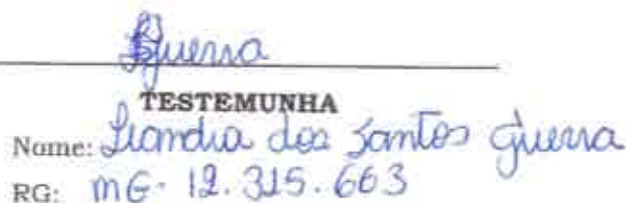 Guerra
TESTEMUNHA
Nome: Leandra dos Santos Guerra
RG: MG- 12.315.663